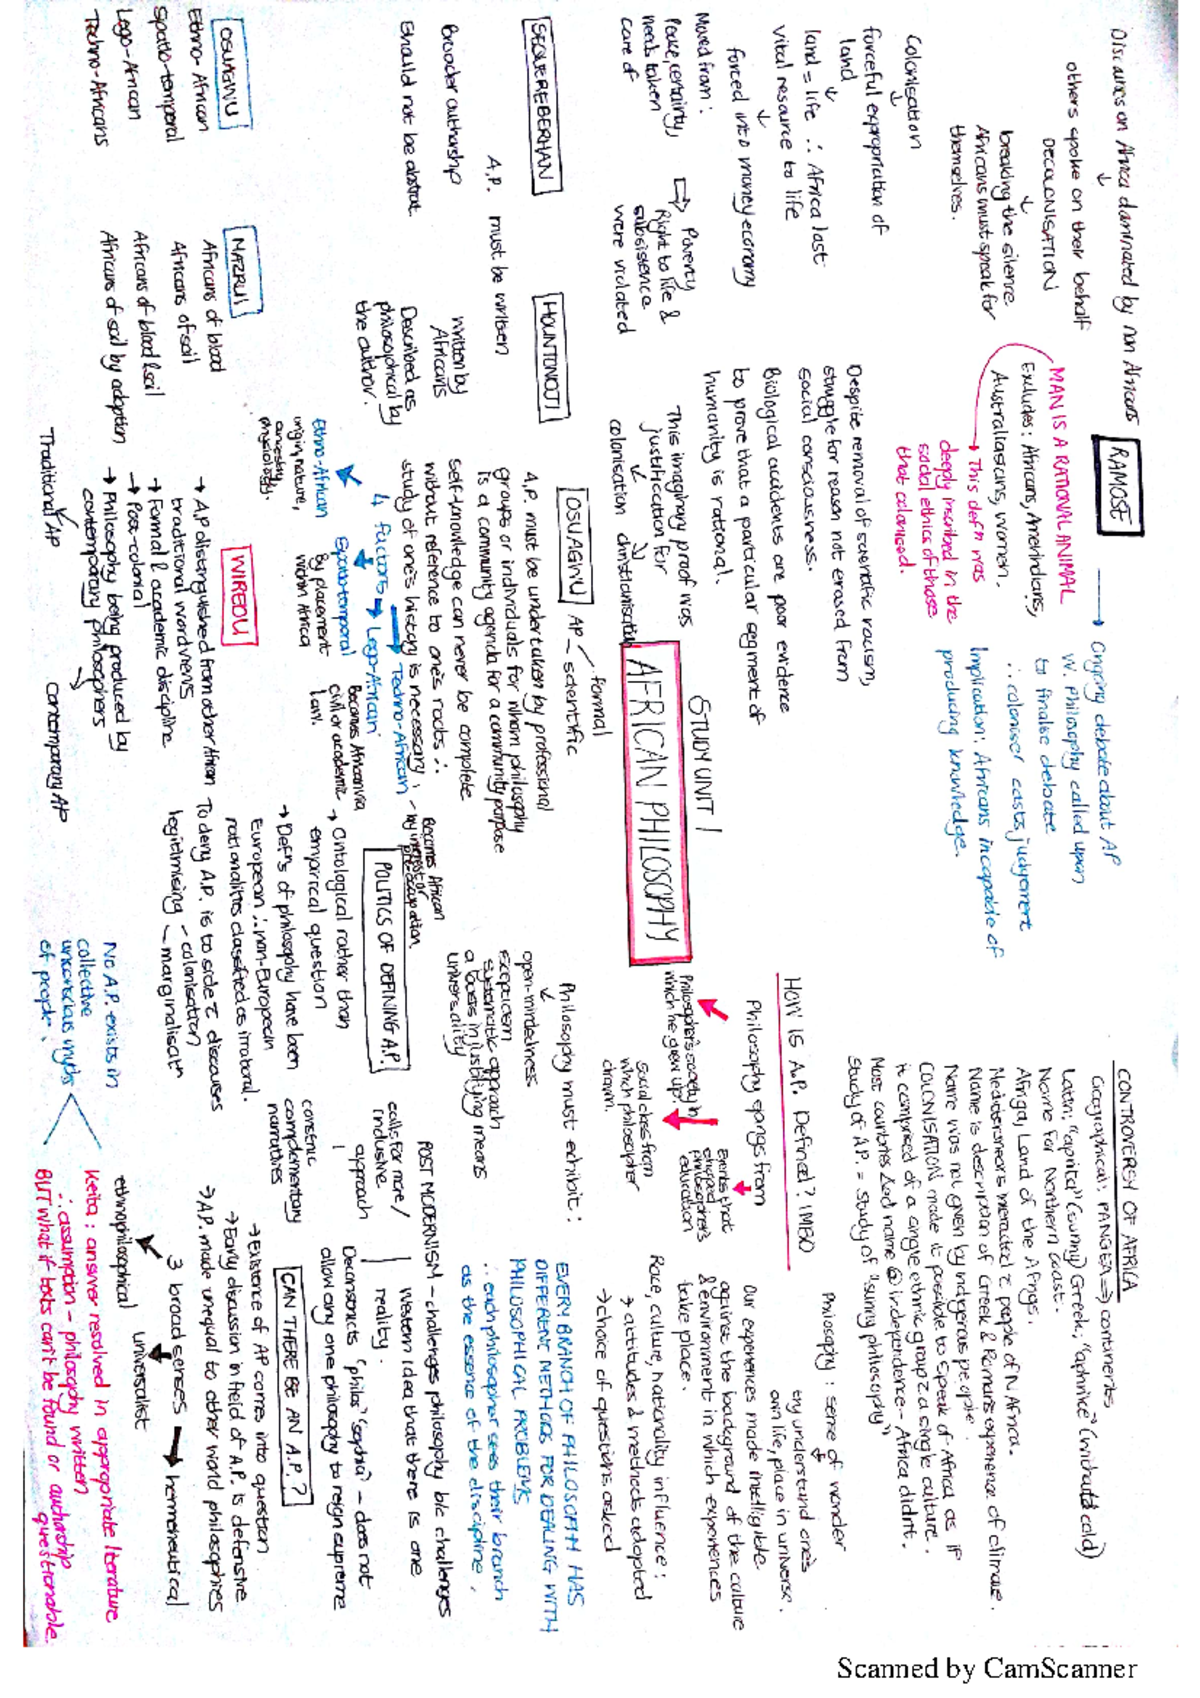 Discourses on Africa dominated by non Africans
↓
others spoke on their behalf
DECOLONISATION
↓
breaking the silence
Africans must speak for
themselves.
Colonisation
↓
forceful expropriation of
land
↓
land = life ∴ Africa lost
vital resource to life
↓
forced into money economy
Moved from:
Peace, certainty,
needs taken
care of
⇒ Poverty
Right to life &
subsistence
were violated
RAMOSE
→ Ongoing debate about AP
W. Philosophy called upon
to finalise debate
∴ coloniser casts judgement
Implication: Africans incapable of
producing knowledge.
MAN IS A RATIONAL ANIMAL
Excludes: Africans, Amerindians,
Australasians, women.
→ This defn was
deeply inscribed in the
social ethics of those
that colonised.
Despite removal of scientific racism,
struggle for reason not erased from
social consciousness.
Biological accidents are poor evidence
to prove that a particular segment of
humanity is rational.
This imaginary proof was
justification for
colonisation christianisation
STUDY UNIT 1
AFRICAN PHILOSOPHY
CONTROVERSY OF AFRICA
Geographical: PANGEA ⇒ continents
Latin: "aprica" (sunny) Greek: "aphrike" (without cold)
Name for Northern coast.
Afriga, Land of the Afrigs.
Mediterranears interacted c people of N Africa.
Name is description of Greek & Romans experience of climate.
Name was not given by indigenous people.
COLONISATION made it possible to speak of Africa as if
it comprised of a single ethnic group c a single culture.
Most countries ∆ed name @ independence - Africa didn't.
Study of A.P. = study of "sunny philosophy"
HOW IS A.P. Defined? IMBO
Philosophy springs from
Philosopher's society in
which he grew up.
Events that
shaped
philosopher's
education
Social class from
which philosopher
drawn.
Philosophy: sense of wonder
↓
try understand one's
own life, place in universe.
Our experiences made intelligible
against the background of the culture
& environment in which experiences
take place.
Race, culture, nationality influence:
→ attitudes & methods adopted
→ choice of questions asked
SEQUEREBERHAN
HOUNTONDJI
A.P. must be written
Broader authorship
Should not be abstrat.
written by
Africans
Described as
philosophical by
the author.
OSUAGWU
AP
formal
scientific
A.P. must be undertaken by professional
groups or individuals for whom philosophy
is a community agenda for a community purpose
Self-knowledge can never be complete
without reference to one's roots ∴
study of one's history is necessary
4 factors
→ Techno-African
→ Lego-African
Becomes African
by interest or
preoccupation
Ethno-African
origin, nature,
ancestry,
physiology.
Spatio-temporal
By placement
within Africa
Becomes African via
civil or academic
law.
Philosophy must exhibit:
↓
open-mindedness
scepticism
systematic approach
a basis in justifying means
universality
EVERY BRANCH OF PHILOSOPHY HAS
DIFFERENT METHODS FOR DEALING WITH
PHILOSOPHICAL PROBLEMS
∴ each philosopher sees their branch
as the essence of the discipline.
POST MODERNISM - challenges philosophy b/c challenges
Western idea that there is one
reality.
Deconstructs "philos" "sophia" - does not
allow any one philosophy to reign supreme
calls for more /
inclusive
approach
construc
complementary
narratives
POLITICS OF DEFINING A.P.
→ Ontological rather than
empirical question
→ Defns of philosophy have been
European ∴ non-European
rationalities classified as irrational.
To deny A.P. is to side c discourses
legitimising - colonisation
- marginalisatn
CAN THERE BE AN A.P.?
→ Existence of AP comes into question
→ Early discussion in field of A.P. is defensive
→ A.P. made unequal to other world philosophies
3 broad senses → hermeneutical
universalist
ethnophilosophical
OSUAGWU
Ethno-African
Spatio-temporal
Lego-African
Techno-Africans
MAZRUI
Africans of blood
Africans of soil
Africans of blood & soil
Africans of soil by adoption
WIREDU
→ AP distinguished from other African
traditional worldviews
→ Formal & academic discipline
→ Post-colonial
→ Philosophy being produced by
contemporary philosophers
Traditional AP
contemporary AP
No A.P. exists in
collective
unconscious myths
of people.
Keita: answer resolved in appropriate literature
∴ assumption - philosophy written
BUT what if texts can't be found or authorship
questionable.
Scanned by CamScanner